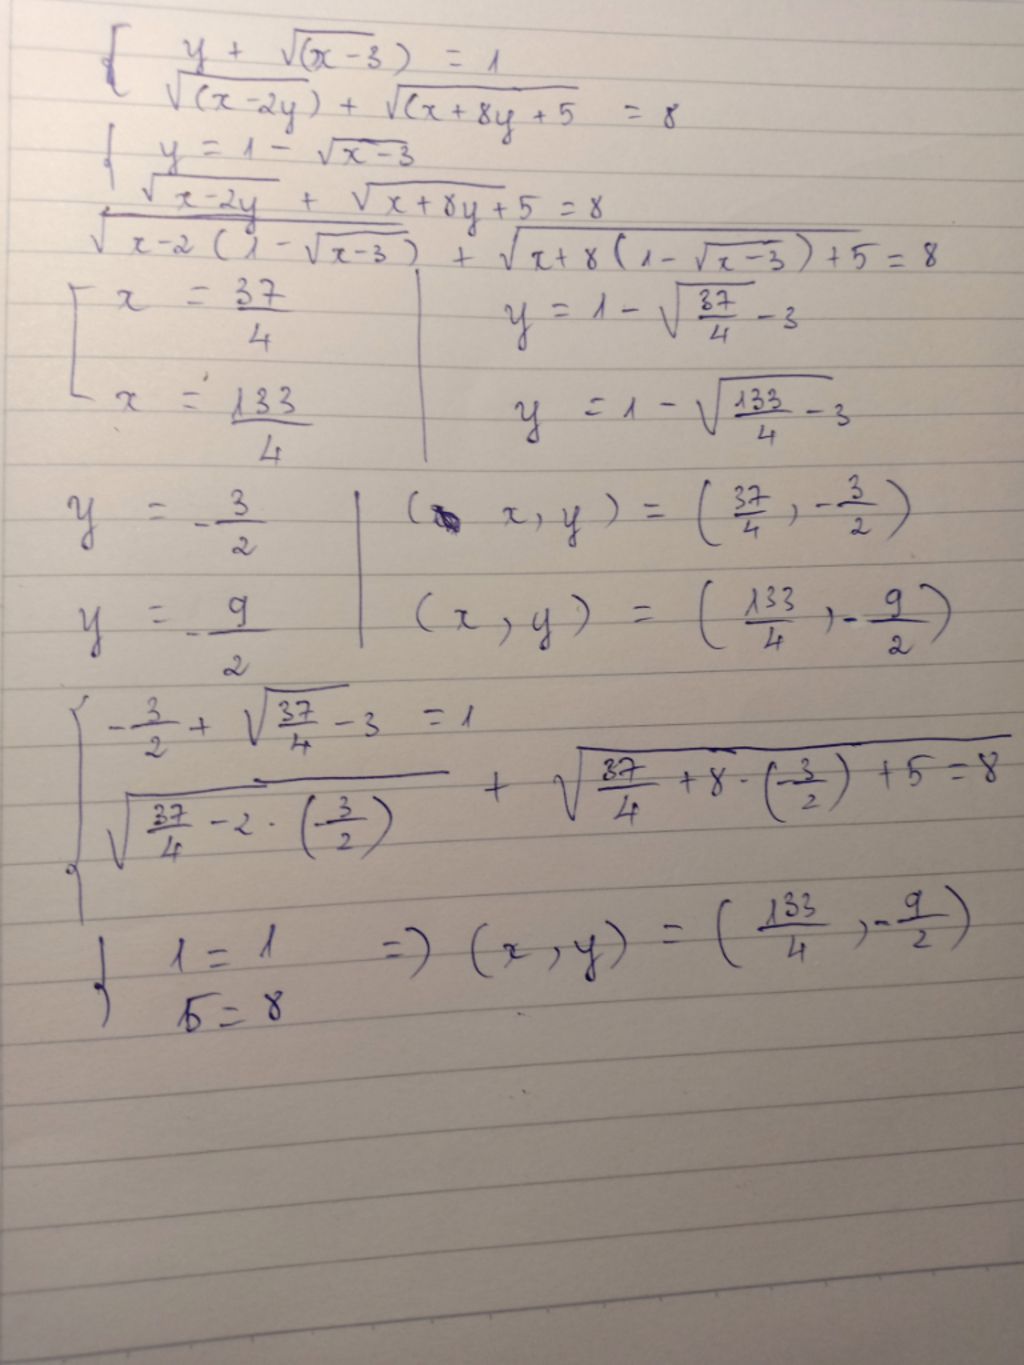 { y + √(x-3) = 1
√(x-2y) + √(x+8y+5 = 8
{ y = 1 - √x-3
√x-2y + √x+8y+5 = 8
√x-2(1-√x-3) + √x+8(1-√x-3)+5 = 8
[ x = 37/4 | y = 1 - √37/4 - 3
x = 133/4 | y = 1 - √133/4 - 3
y = -3/2 | (x, y) = (37/4, -3/2)
y = -9/2 | (x, y) = (133/4, -9/2)
{ -3/2 + √37/4 - 3 = 1
√37/4 - 2 · (-3/2) + √37/4 + 8 · (-3/2) + 5 = 8
{ 1 = 1 => (x, y) = (133/4, -9/2)
5 = 8